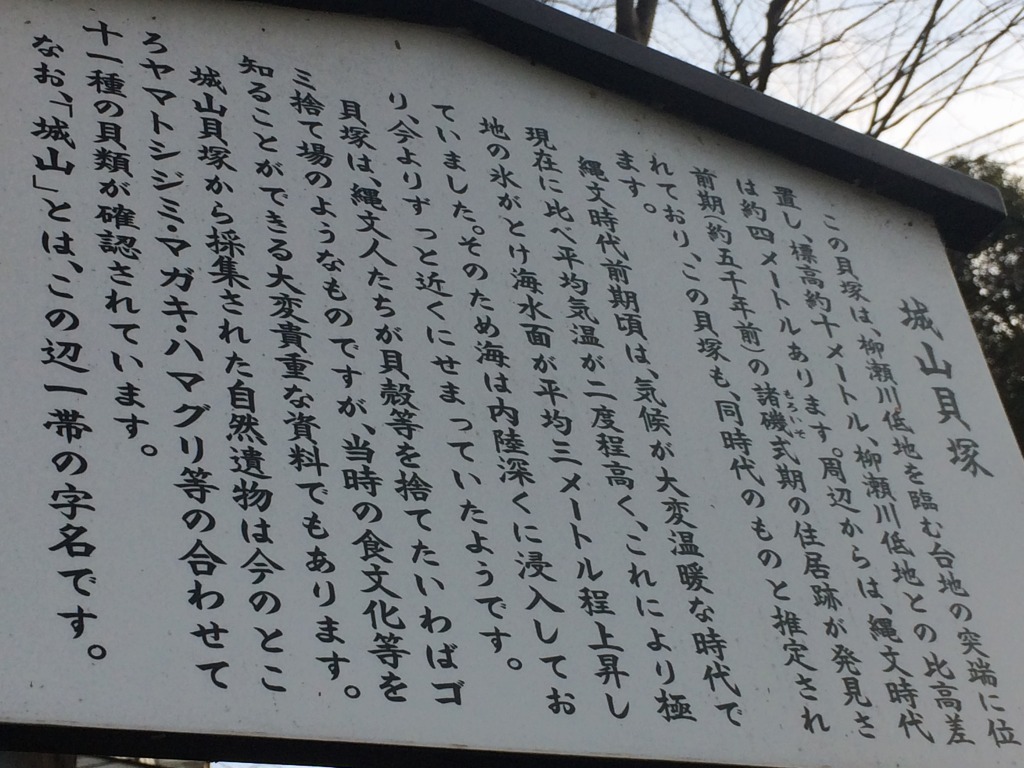 城山貝塚
この貝塚は、柳瀬川低地を臨む台地の突端に位
置し、標高約十メートル、柳瀬川低地との比高差
は約四メートルあります。周辺からは、縄文時代
前期(約五千年前)の諸磯式期の住居跡が発見さ
もろいそ
れており、この貝塚も、同時代のものと推定され
ます。
縄文時代前期頃は、気候が大変温暖な時代で
現在に比べ平均気温が二度程高く、これにより極
地の氷がとけ海水面が平均三メートル程上昇し
ていました。そのため海は内陸深くに浸入してお
り、今よりずっと近くにせまっていたようです。
貝塚は、縄文人たちが貝殻等を捨てたいわばゴ
ミ捨て場のようなものですが、当時の食文化等を
知ることができる大変貴重な資料でもあります。
城山貝塚から採集された自然遺物は今のとこ
ろヤマトシジミ・マガキ・ハマグリ等の合わせて
十一種の貝類が確認されています。
なお、「城山」とは、この辺一帯の字名です。